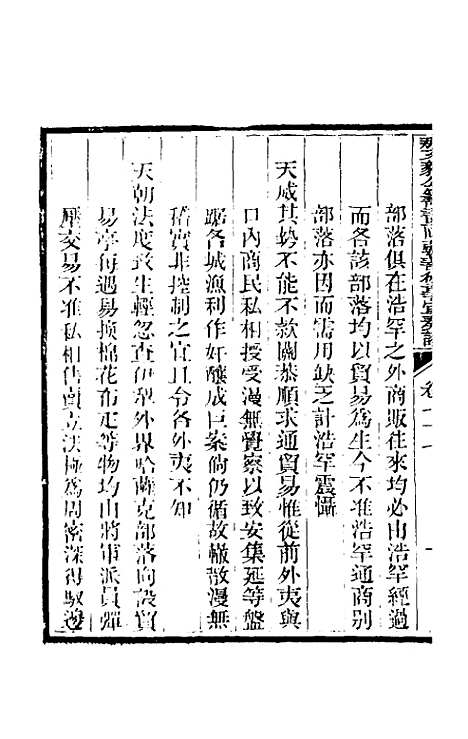 部落俱在浩罕之外商販往來均必由浩罕經過
而各該部落均以貿易爲生今不准浩罕通商别
部落亦因而需用缺乏計浩罕震懾
天威其勢不能不款關恭順求通貿易惟從前外夷與
口內商民私相授受漫無覺察以致安集延等盤
踞各城漁利作奸釀成巨案倘仍循故轍散漫無
稽實非控制之宜且令各外夷不知
天朝法度致生輕忽查伊犁外界哈薩克部落向設貿
易亭每遇易換棉花布疋等物均由將軍派員彈
壓交易不准私相售賣立法極爲周密深得馭邊
那文毅公籌畫回疆善後事宜奏議
卷七十七